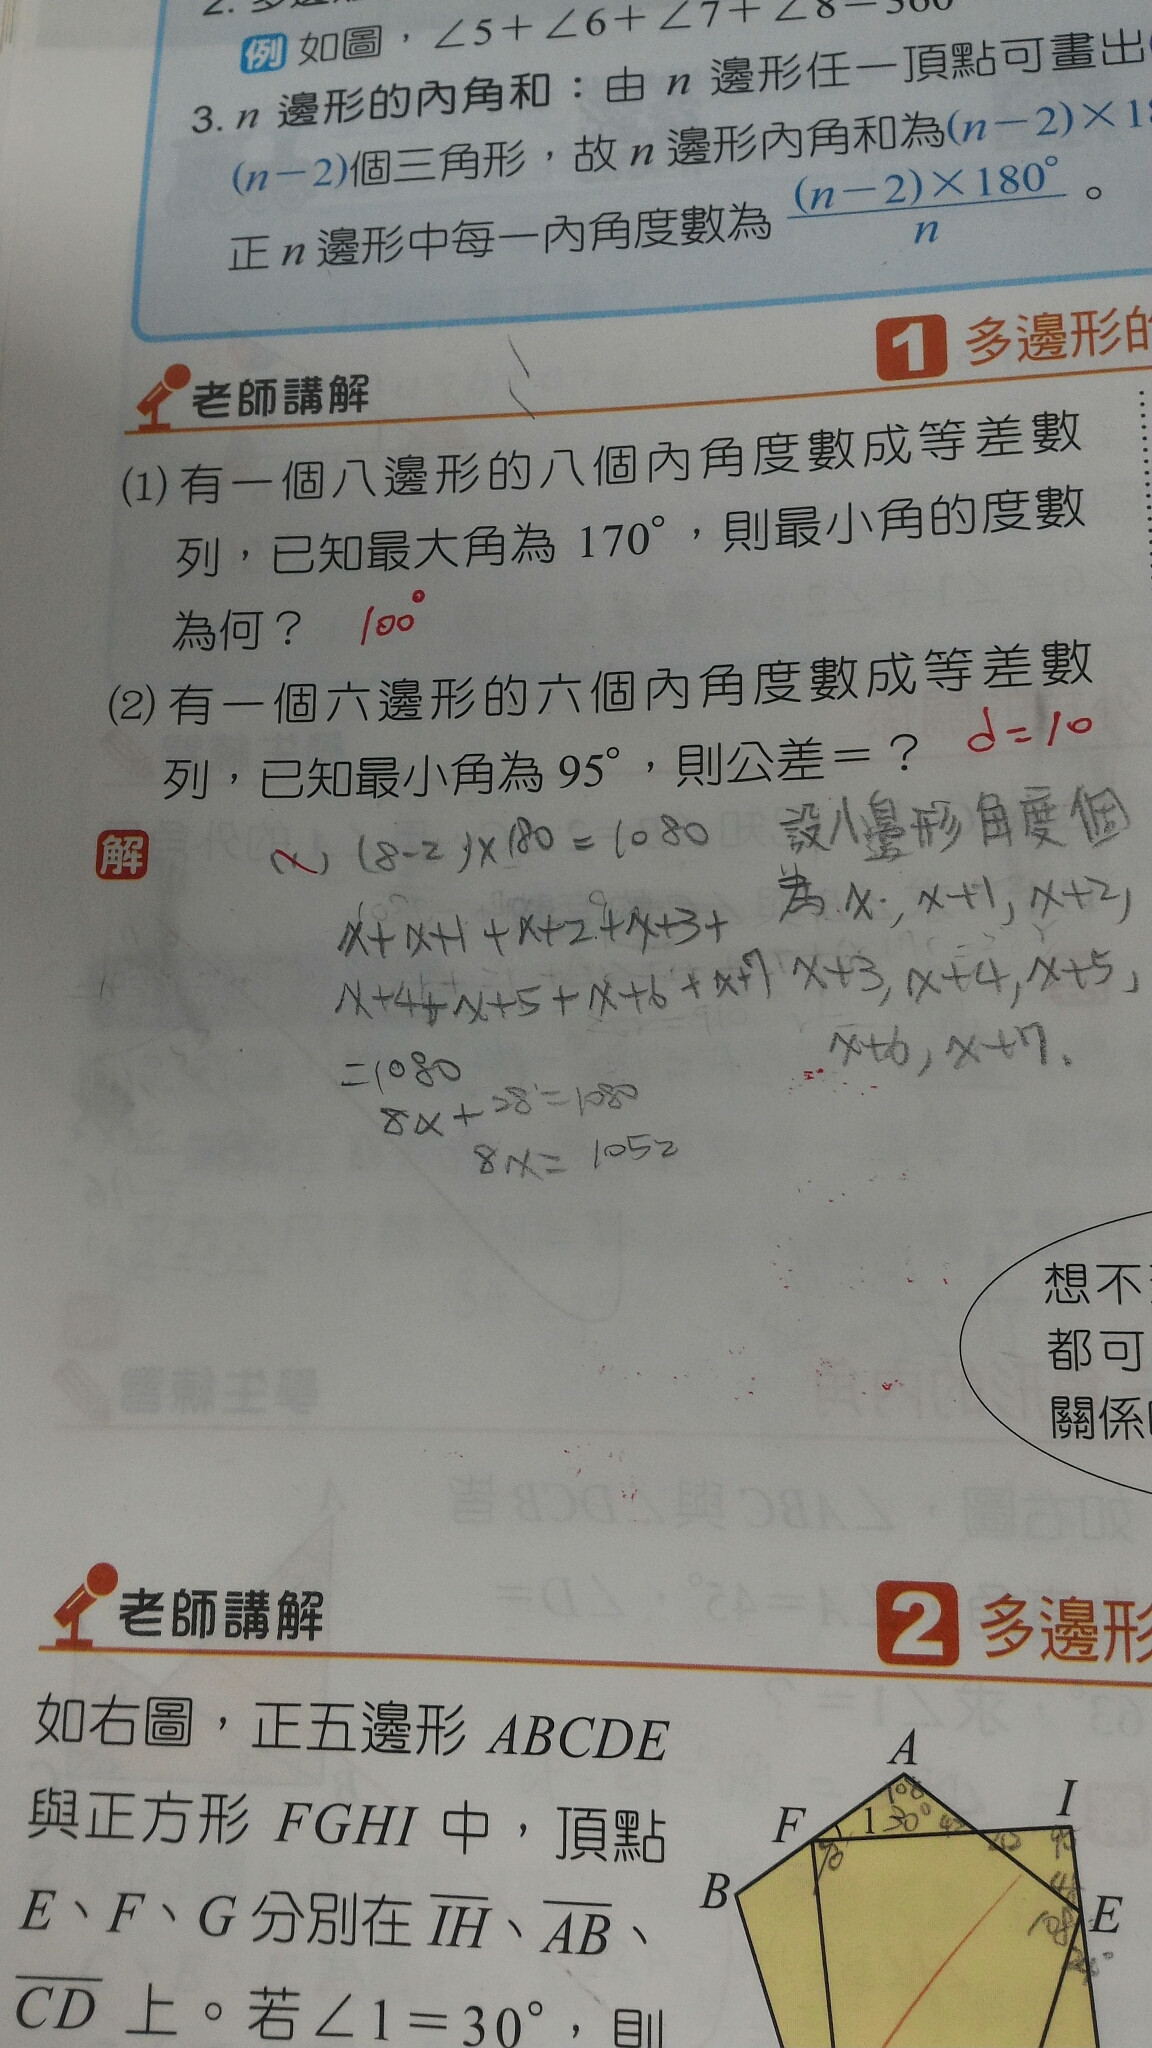 ∠5+∠6+∠7+∠8=360°
例 如圖，
3. n 邊形的內角和：由 n 邊形任一頂點可畫出
(n-2)個三角形，故 n 邊形內角和為(n-2)×18
正 n 邊形中每一內角度數為 (n-2)×180°/n 。
1 多邊形的
老師講解
(1) 有一個八邊形的八個內角度數成等差數
列，已知最大角為 170°，則最小角的度數
為何？ 100°
(2) 有一個六邊形的六個內角度數成等差數
列，已知最小角為 95°，則公差＝？ d=10
解
(8-2)×180=1080
設八邊形角度個
為 x, x+1, x+2,
x+3, x+4, x+5,
x+6, x+7.
x+x+1+x+2+x+3+
x+4+x+5+x+6+x+7
=1080
8x+28=1080
8x=1052
想不
都可
關係
老師講解
2 多邊形
如右圖，正五邊形 ABCDE
與正方形 FGHI 中，頂點
E、F、G 分別在 IH、AB、
CD 上。若∠1＝30°，則
A
I
F
1
30°
B
E
108
90
108